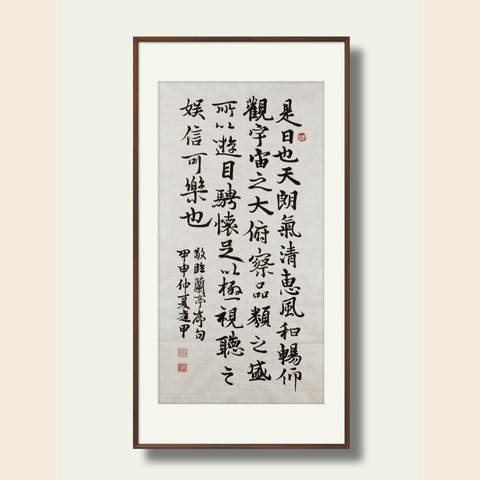 是日也天朗氣清惠風和暢仰
觀宇宙之大俯察品類之盛
所以遊目騁懷足以極視聽之
娛信可樂也
敬臨蘭亭序句
甲申仲夏蓮甲